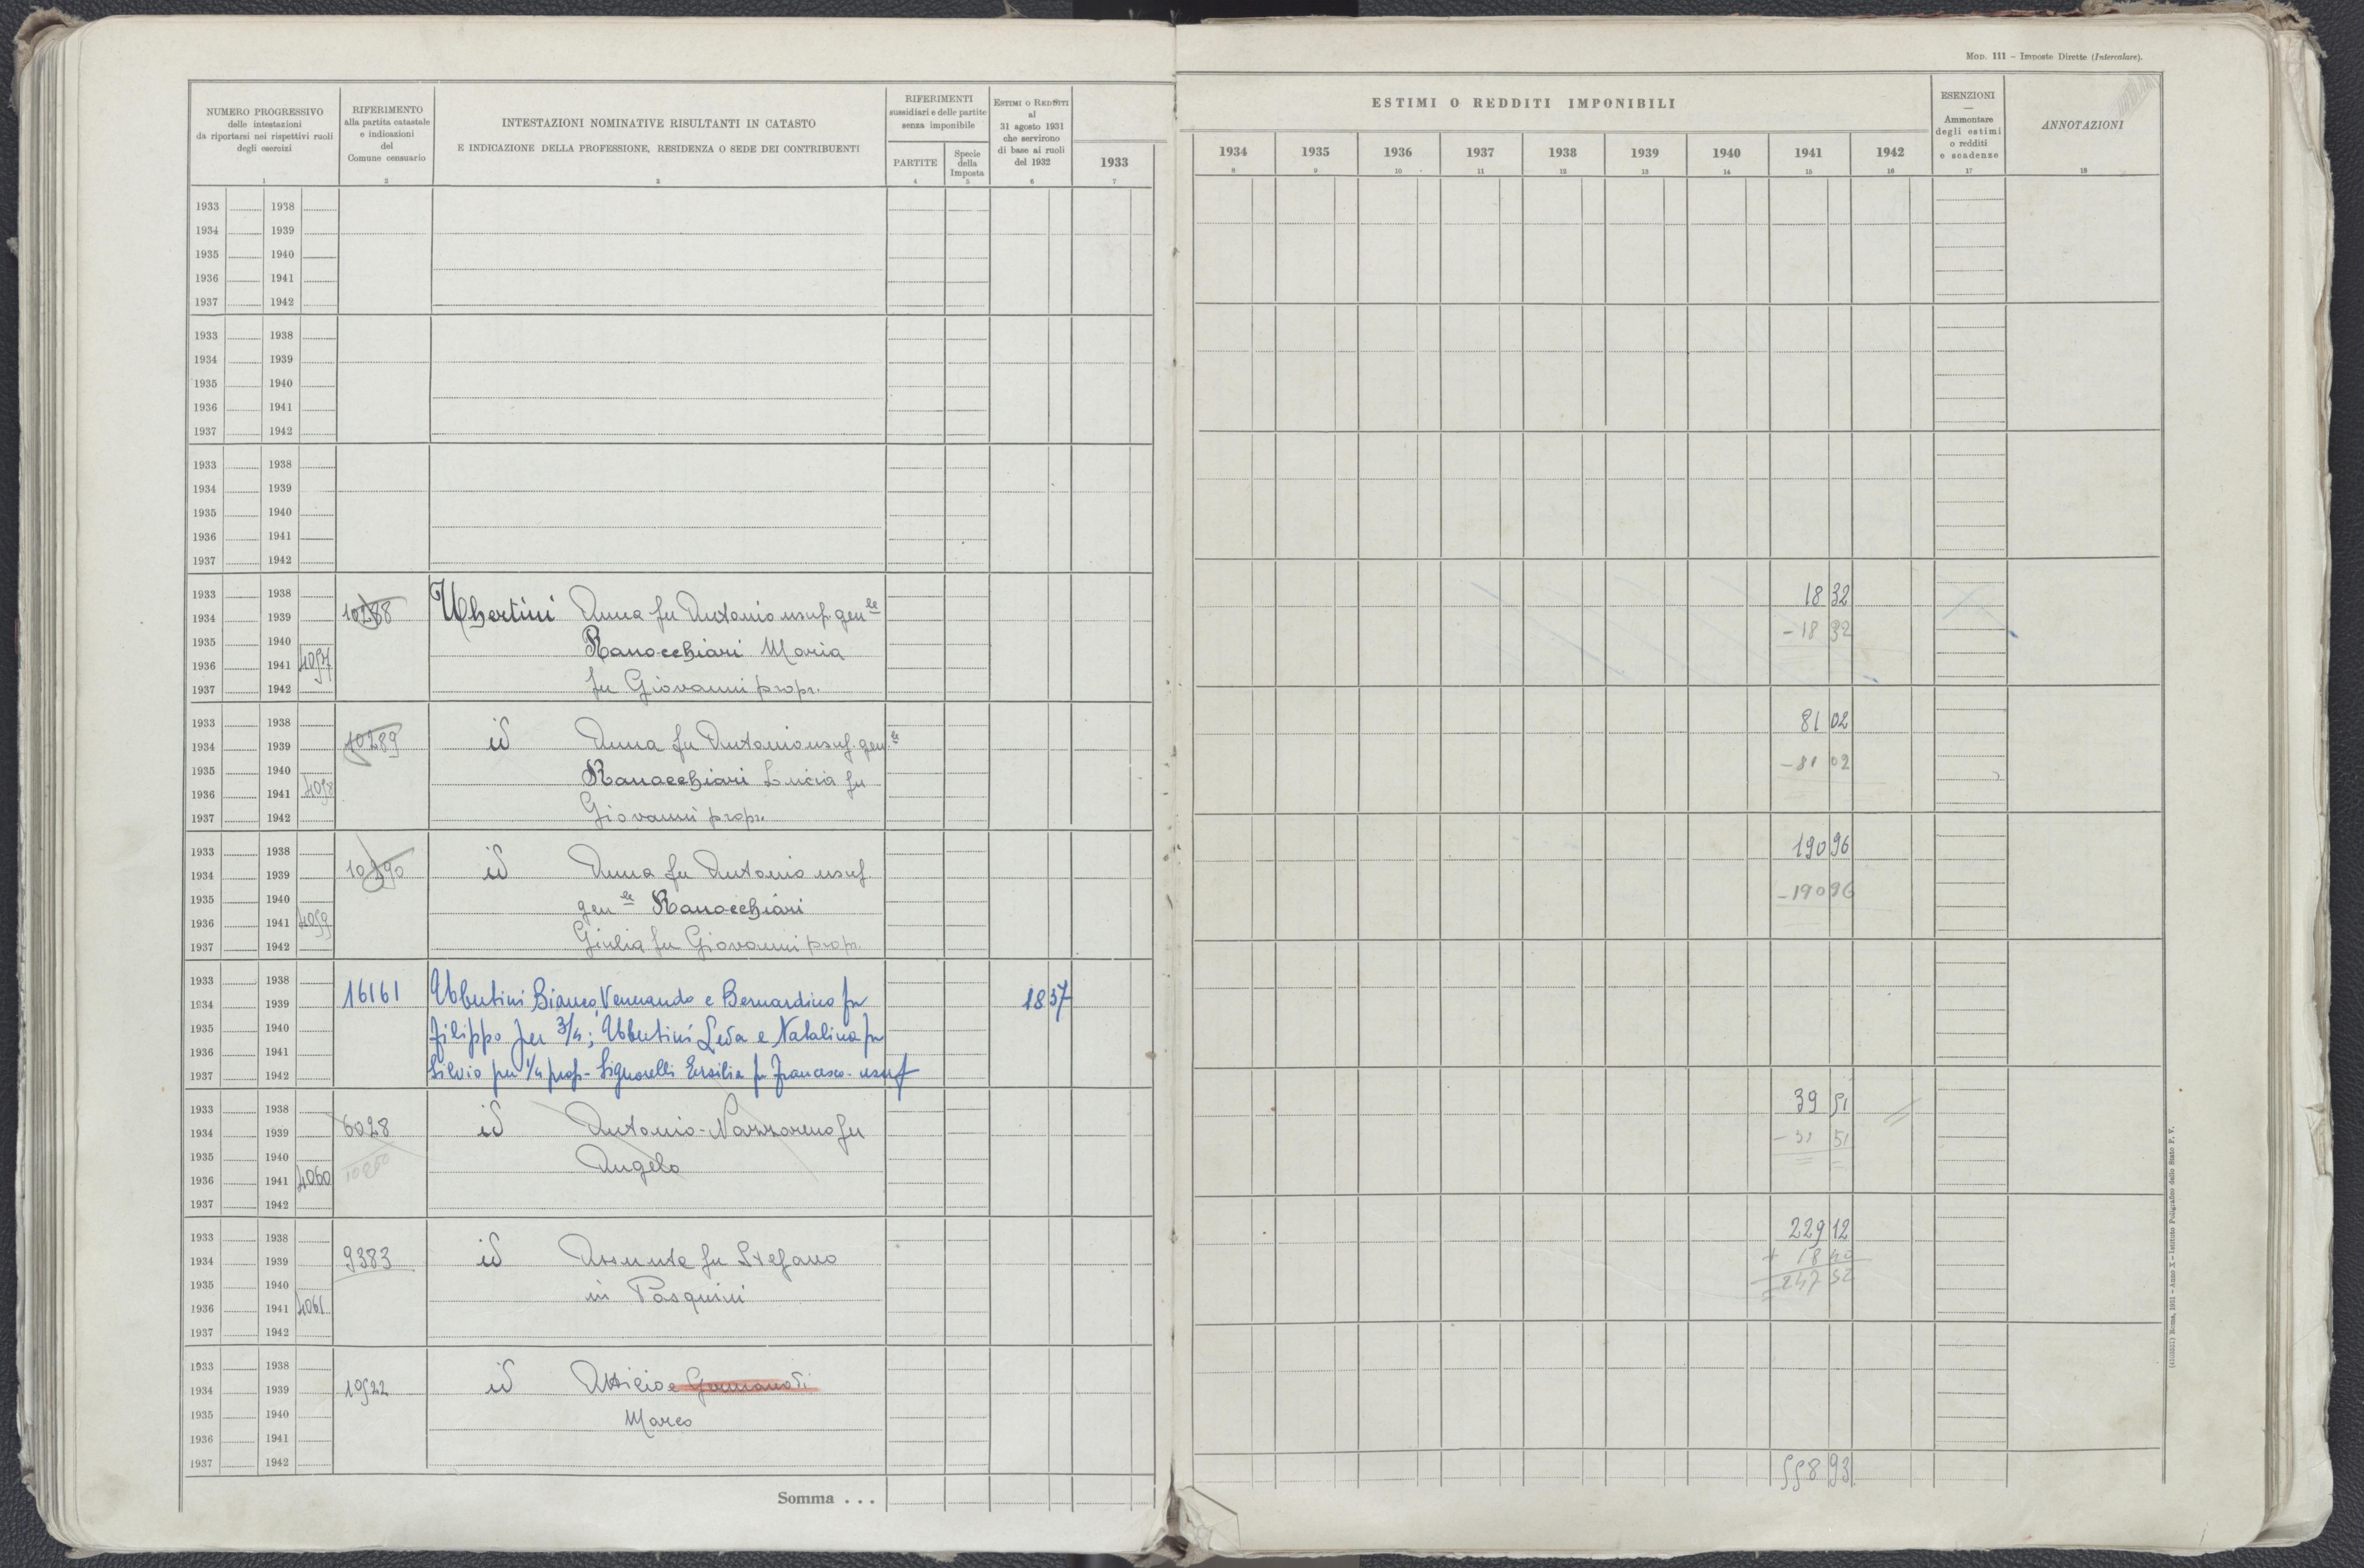 Mod. 111 – Imposte Dirette (Intercalare).
NUMERO PROGRESSIVO
delle intestazioni
da riportarsi nei rispettivi ruoli
degli esercizi
1
RIFERIMENTO
alla partita catastale
e indicazioni
del
Comune censuario
2
INTESTAZIONI NOMINATIVE RISULTANTI IN CATASTO
E INDICAZIONE DELLA PROFESSIONE, RESIDENZA O SEDE DEI CONTRIBUENTI
3
RIFERIMENTI
sussidiari e delle partite
senza imponibile
PARTITE
4
Specie
della
Imposta
5
ESTIMI O REDDITI
al
31 agosto 1931
che servirono
di base ai ruoli
del 1932
6
1933
7
ESTIMI O REDDITI IMPONIBILI
1934 1935 1936 1937 1938 1939 1940 1941 1942
8 9 10 11 12 13 14 15 16
ESENZIONI
—
Ammontare
degli estimi
o redditi
e scadenze
17
ANNOTAZIONI
18
1933 1938
1934 1939
1935 1940
1936 1941
1937 1942
1933 1938
1934 1939
1935 1940
1936 1941
1937 1942
1933 1938
1934 1939
1935 1940
1936 1941
1937 1942
1933 1938 18 32
1934 1939 10288 Ubertini Anna fu Antonio usuf. gen le
1935 1940 Ranocchiari Maria - 18 32
1936 1941 4057
1937 1942 fu Giovanni propr.
1933 1938 81 02
1934 1939 10289 id Anna fu Antonio usuf. gen. le
1935 1940 Ranocchiari Lucia fu - 81 02
1936 1941 4058
1937 1942 Giovanni propr.
1933 1938 190 96
1934 1939 10290 id Anna fu Antonio usuf.
1935 1940 gen le Ranocchiari - 190 96
1936 1941 4059
1937 1942 Giulia fu Giovanni propr.
1933 1938
1934 1939 16161 Ubbertini Bianco, Vennando e Bernardino fu 18 37
1935 1940 Filippo per 3/4; Ubbertini Leda e Natalina fu
1936 1941
1937 1942 Silvio per 1/4 prop - Signorelli Ersilia fu Francesco - usuf
1933 1938 39 51
1934 1939 6028 id Antonio-Nazzareno fu
1935 1940 Angelo
1936 1941 4060
1937 1942
1933 1938 229 12
1934 1939 9383 id Assunta fu Stefano + 18 40
1935 1940 in Pasquini 247 52
1936 1941 4061
1937 1942
1933 1938
1934 1939 10522 id Attilio e Germano di
1935 1940 Marco
1936 1941
1937 1942
Somma . . . 558 93
(4103551) Roma, 1931 - Anno X - Istituto Poligrafico dello Stato P. V.